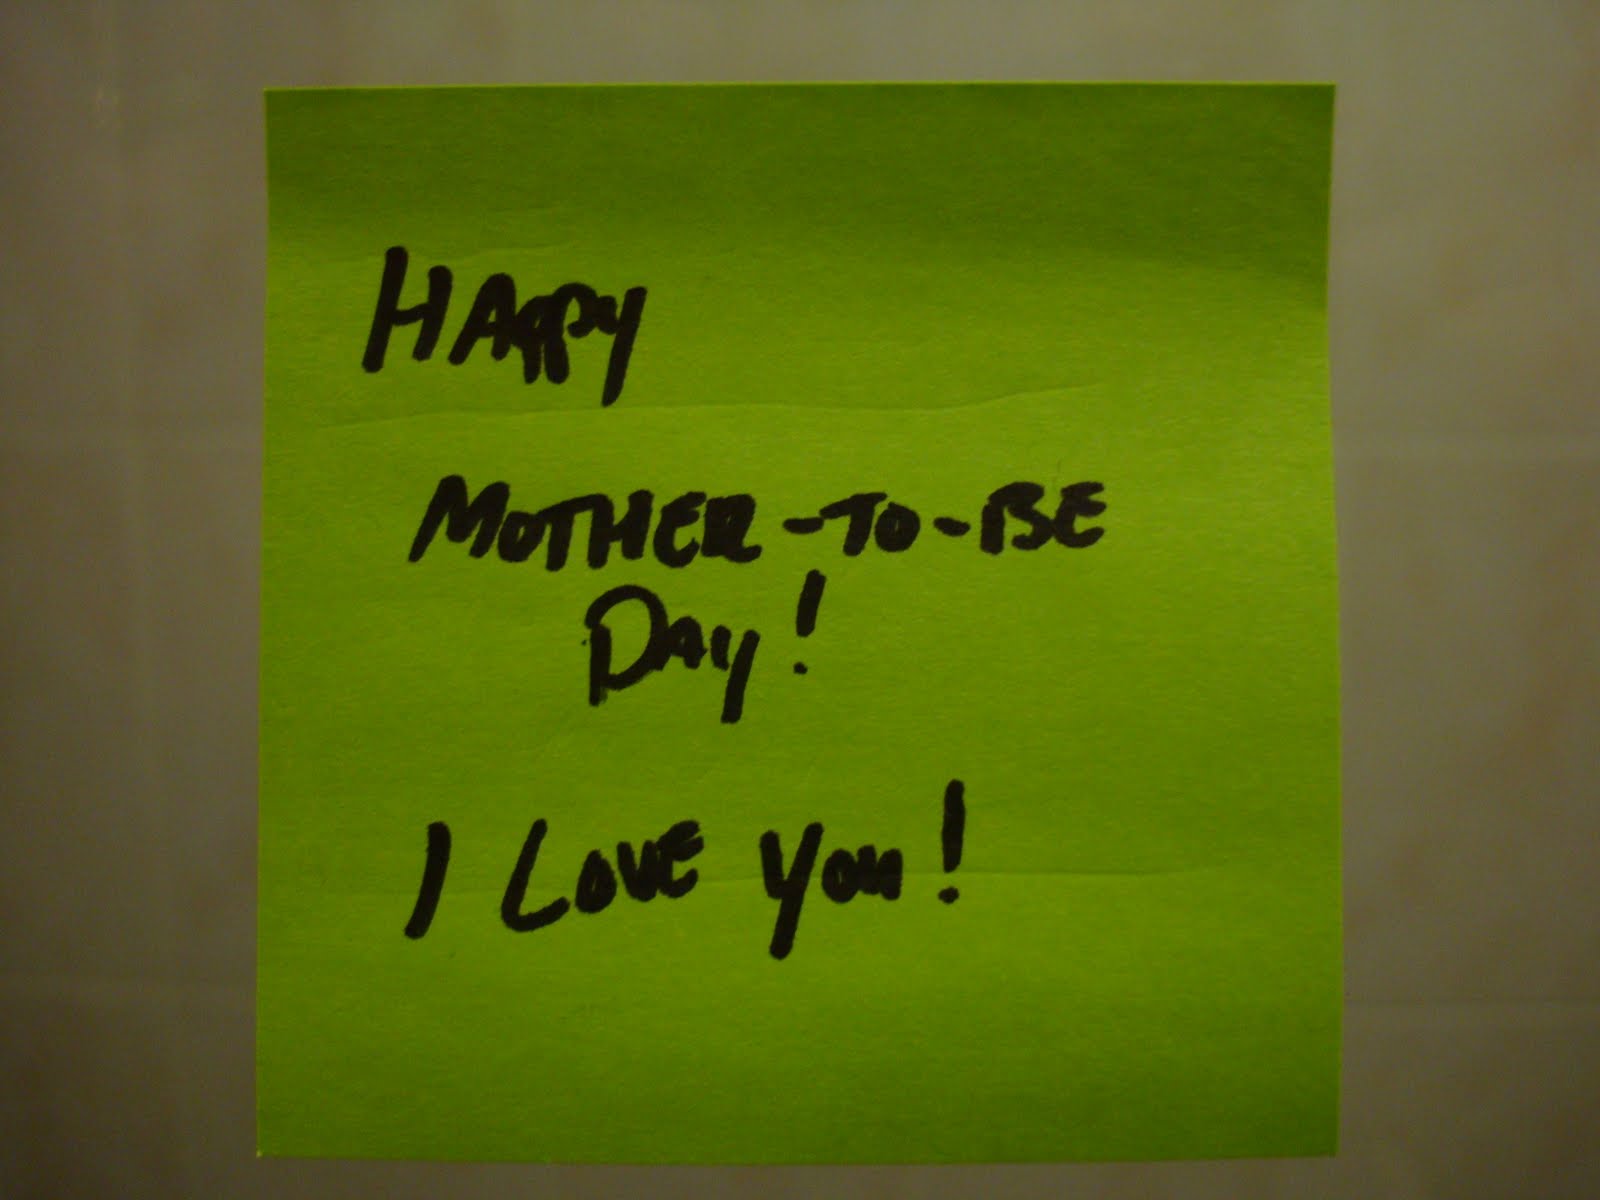 HAppy
MOTHER-TO-BE
DAy!
I LOVE you!